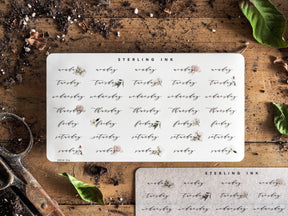 STERLING INK
monday monday monday monday monday
tuesday tuesday tuesday tuesday tuesday
wednesday wednesday wednesday wednesday wednesday
thursday thursday thursday thursday thursday
friday friday friday friday friday
saturday saturday saturday saturday saturday
sunday sunday sunday sunday sunday
STERLING INK
monday monday monday monday
tuesday tuesday tuesday
wednesday wednesday wednesday